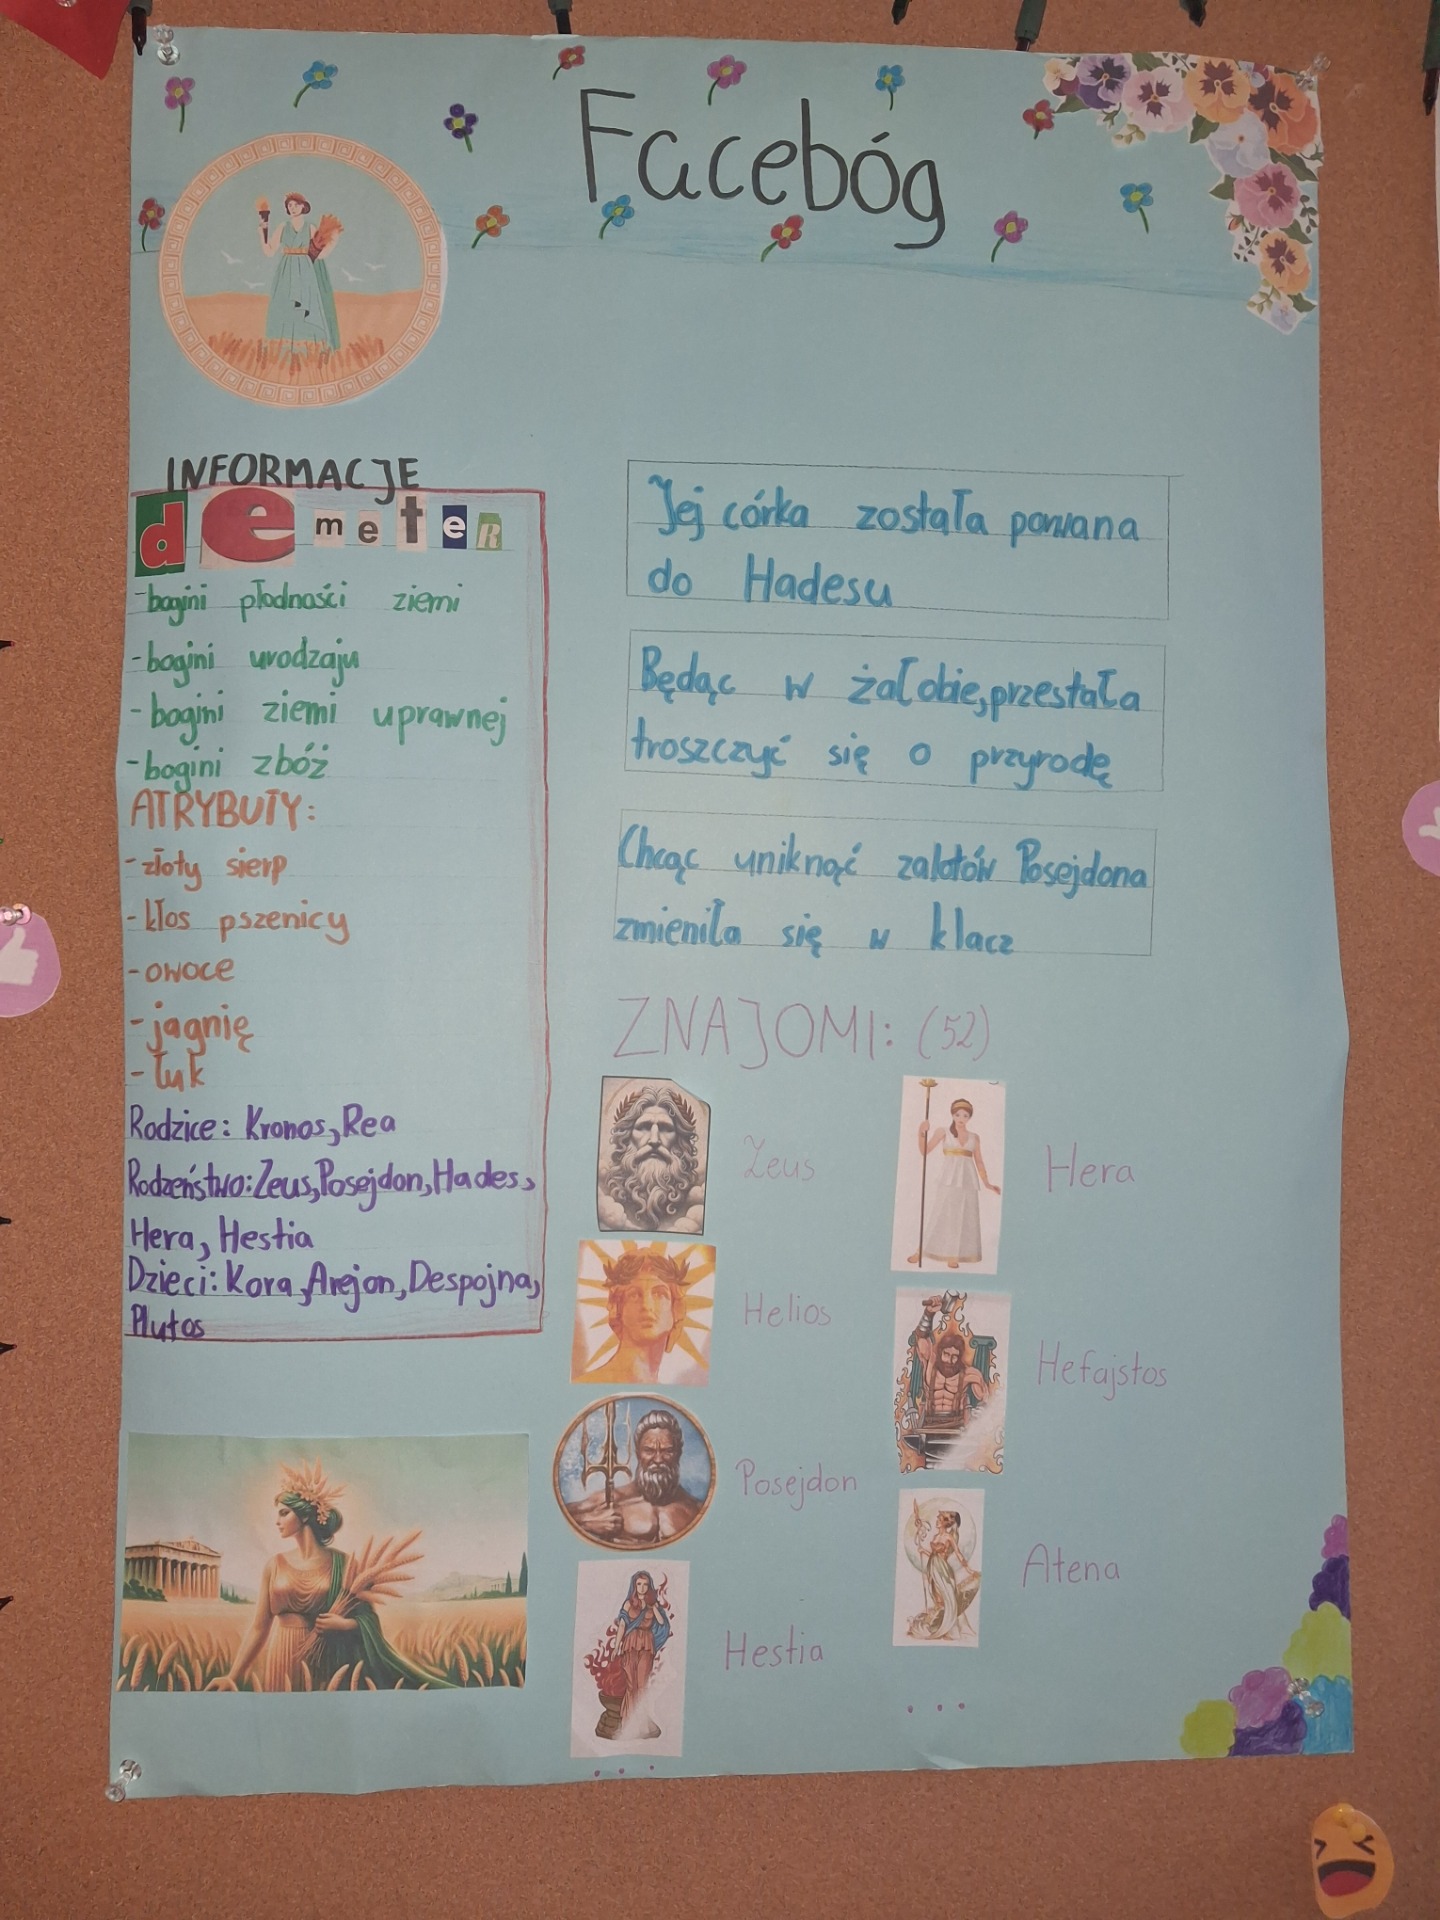 Facebóg
INFORMACJE
demeteR
-bogini płodności ziemi
-bogini urodzaju
-bogini ziemi uprawnej
-bogini zbóż
ATRYBUTY:
-złoty sierp
-kłos pszenicy
-owoce
-jagnię
-łuk
Rodzice: Kronos, Rea
Rodzeństwo: Zeus, Posejdon, Hades,
Hera, Hestia
Dzieci: Kora, Arejon, Despojna,
Plutos
Jej córka została porwana
do Hadesu
Będąc w żałobie, przestała
troszczyć się o przyrodę
Chcąc uniknąć zalotów Posejdona
zmieniła się w klacz
ZNAJOMI: (52)
Zeus
Hera
Helios
Hefajstos
Posejdon
Atena
Hestia
...
...